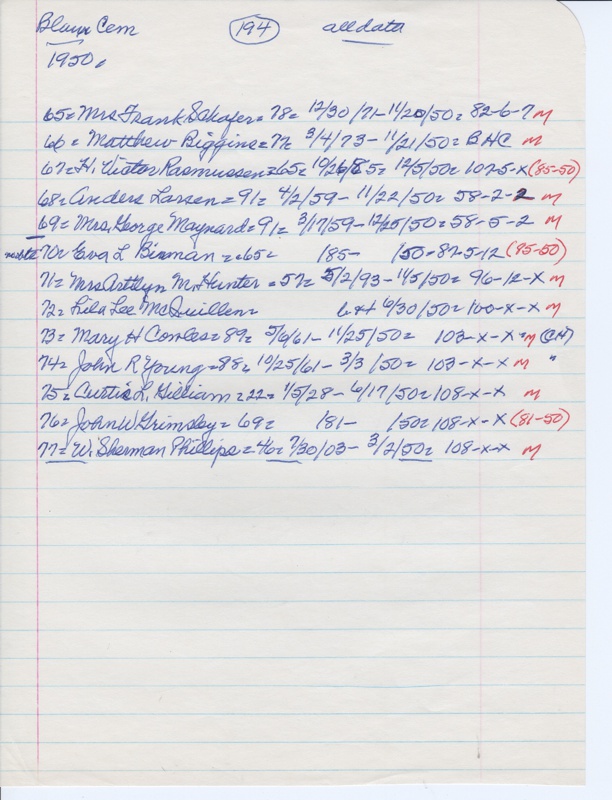 Blaine Cem 194 all data
1950.
65= Mrs Frank Schafer= 78= 12/30/71-11/20/50= 82-6-7 M
66= Matthew Biggins= 77= 3/4/73-11/21/50= BHC M
67= H. Victor Rasmussen= 65= 10/26/85= 12/5/50= 107-5-X (85-50)
68= Anders Larsen= 91= 4/2/59-11/22/50= 58-2-2 M
69= Mrs. George Maynard= 91= 3/17/59-12/25/50= 58-5-2 M
70= Eva L Binman= 65= /85- /50= 87-5-12 (85-50)
71= Mrs Arttlyn M. Hunter= 57= 5/2/93-11/5/50= 96-12-X M
72= Lila Lee McQuillen= 6/30/50= 100-X-X M
73= Mary H Combes= 89= 5/6/61-11/25/50= 103-X-X M (CH)
74= John R Young= 88= 10/25/61-3/3/50= 103-X-X M "
75= Curtis L. Gilliam= 22= 1/5/28-6/17/50= 108-X-X M
76= John W Grimsley= 69= /81- /50= 108-X-X (81-50)
77= W. Sherman Phillips= 46= 7/30/03-3/2/50= 108-X-X M